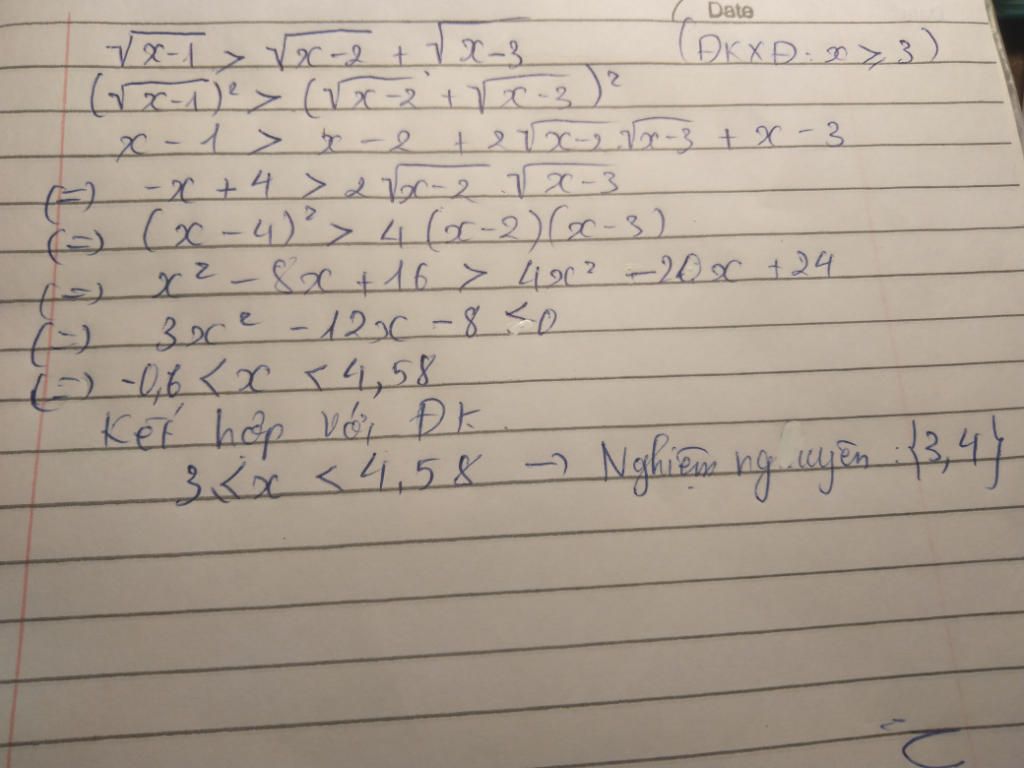 Date
√x-1 > √x-2 + √x-3 (ĐKXĐ: x ⩾ 3)
(√x-1)² > (√x-2 + √x-3)²
x - 1 > x - 2 + 2√x-2.√x-3 + x - 3
(=) -x + 4 > 2√x-2 . √x-3
(=) (x - 4)² > 4(x-2)(x-3)
(=) x² - 8x + 16 > 4x² - 20x + 24
(=) 3x² - 12x - 8 < 0
(=) -0,6 < x < 4,58
Kết hợp với ĐK.
3 < x < 4,58 → Nghiệm nguyên : {3,4}